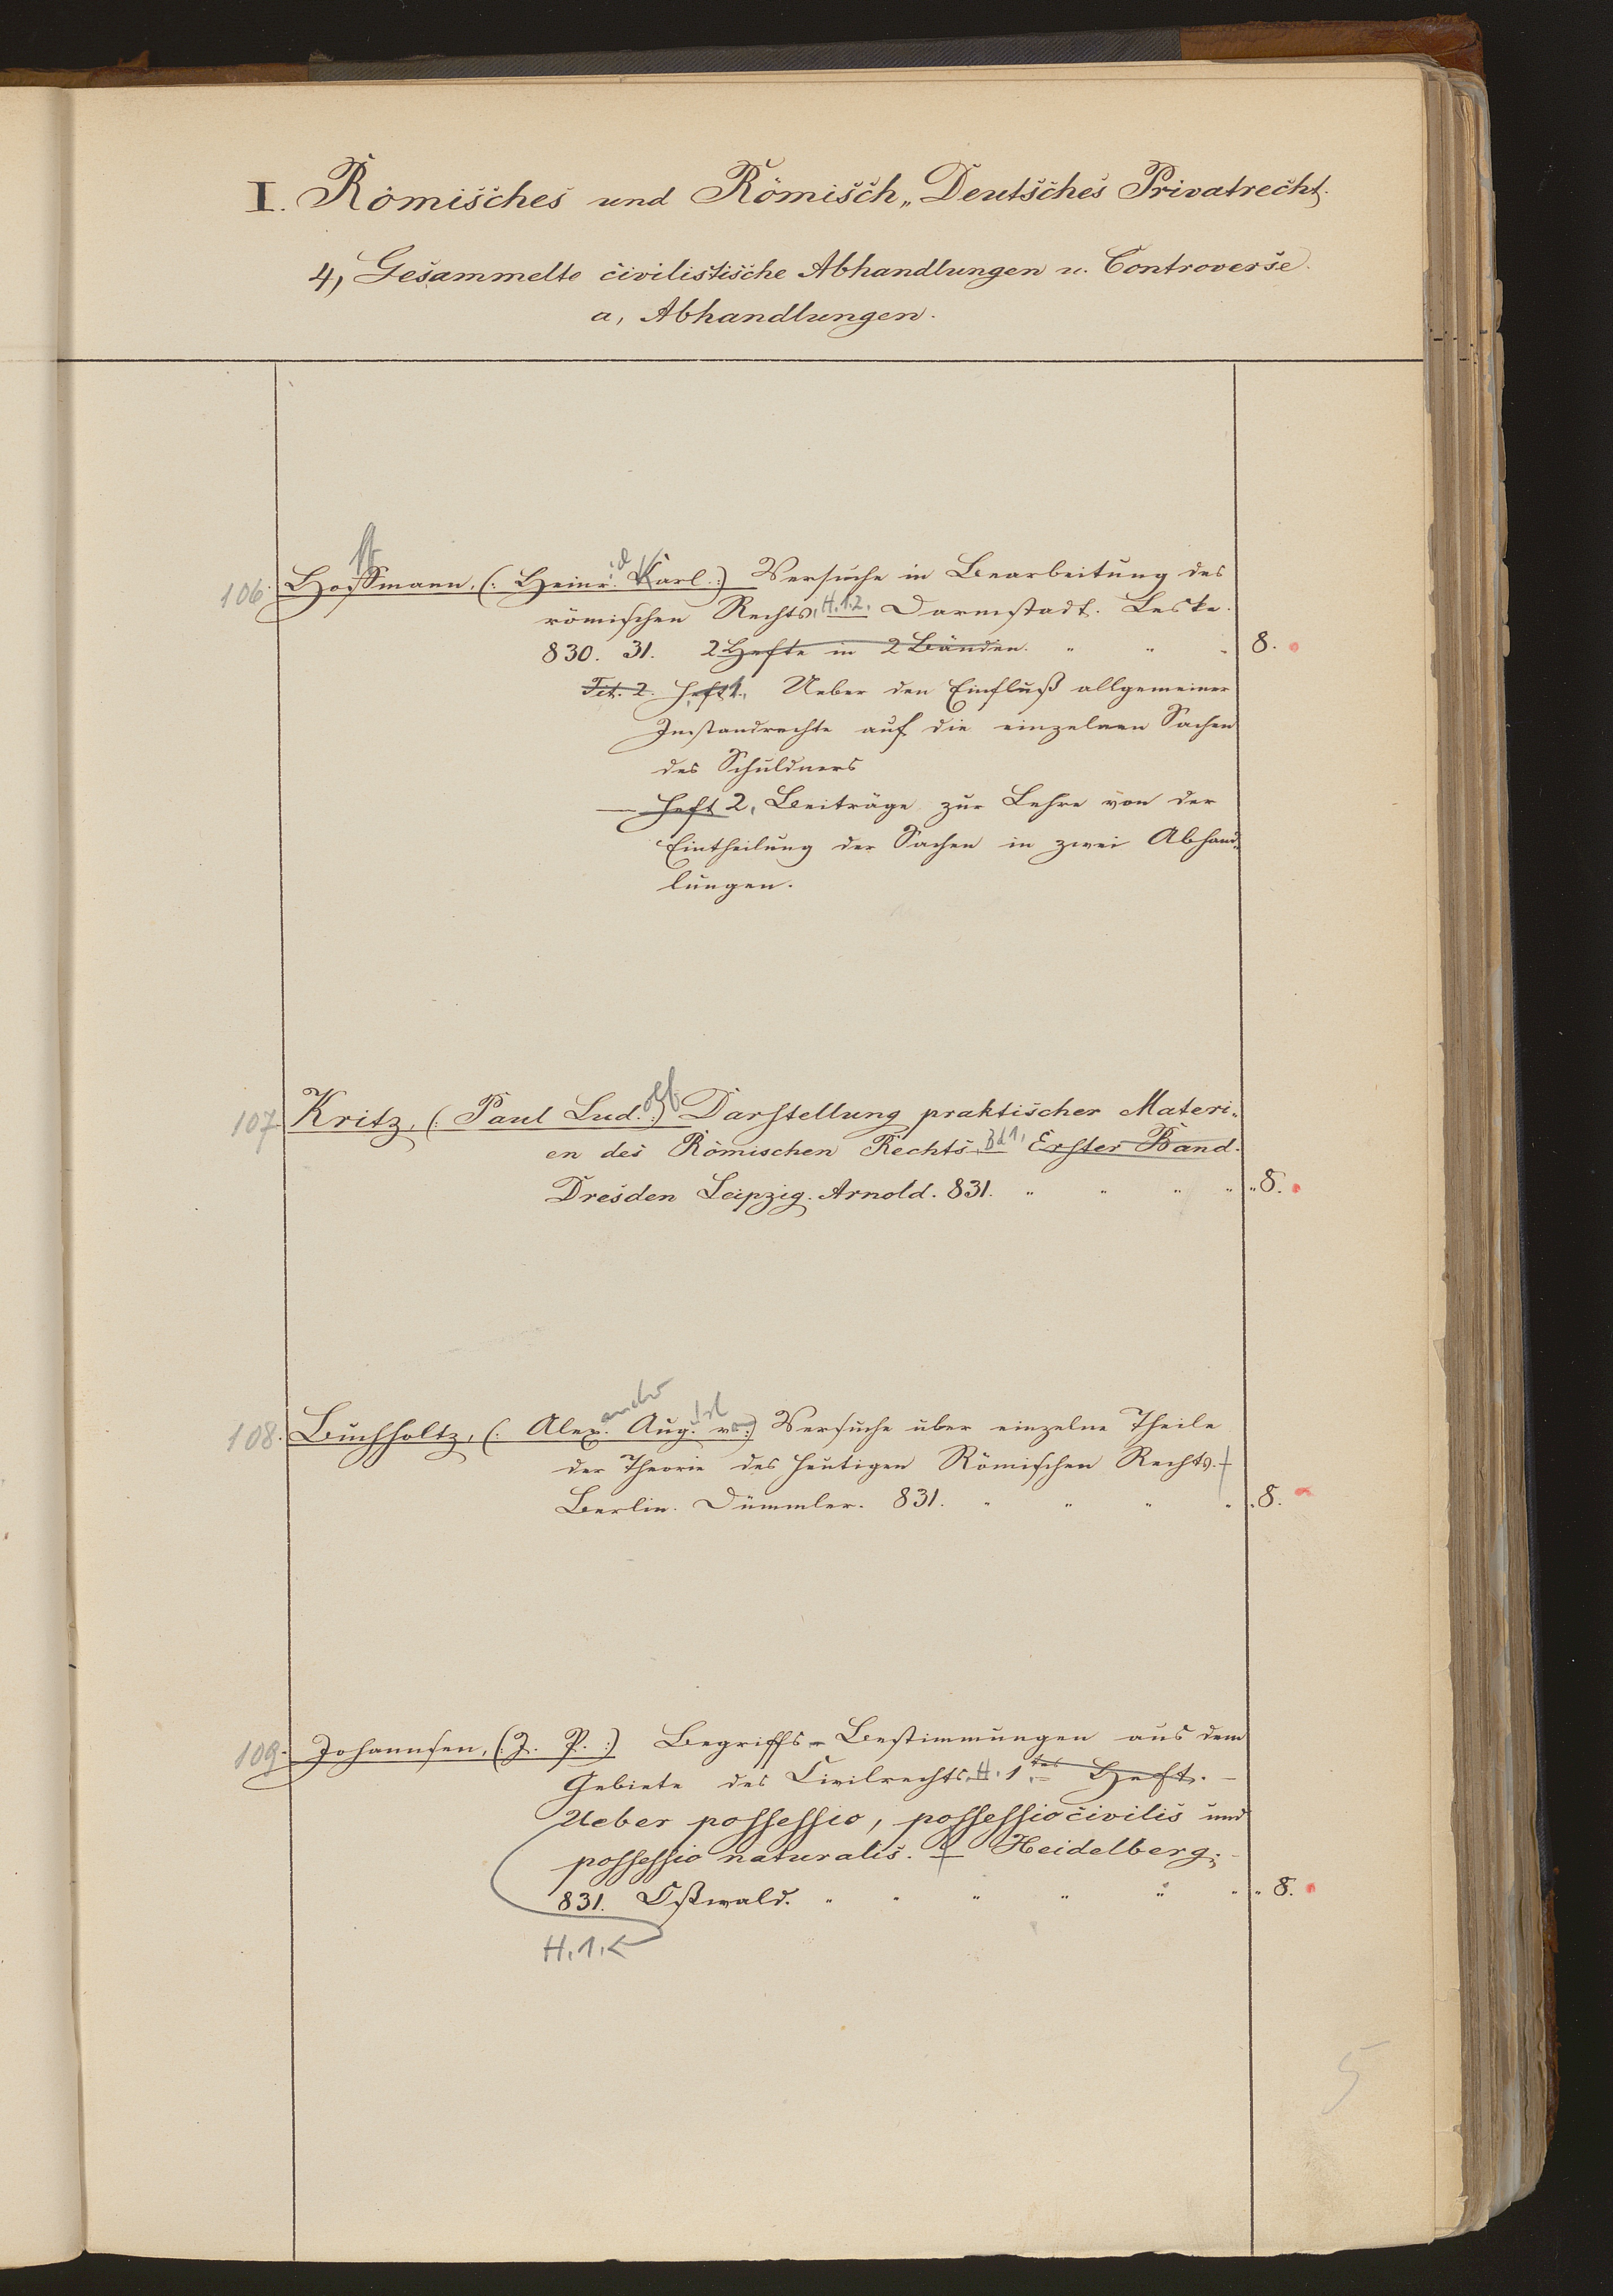 I. Römisches und Römisch„Deutsches Privatrecht.
4, Gesammelte civilistische Abhandlungen u. Controverse.
a, Abhandlungen.
106. Hoffmann, (: Heinr. Karl :) Versuche in Bearbeitung des
römischen Rechts, H. 1. 2. Darmstadt. Leske.
830. 31. 2 Hefte in 2 Bänden. " " " 8.
Tit. 2. Heft 1., Ueber den Einfluß allgemeiner
Zustandrechte auf die einzelnen Sachen
des Schuldners
— Heft 2, Beiträge zur Lehre von der
Eintheilung der Sachen in zwei Abhand„
lungen.
107. Kritz, (: Paul Lud. :) Darstellung praktischer Materi„
en des Römischen Rechts Bd 1, Erster Band.
Dresden Leipzig. Arnold. 831. " " " " " 8.
ander
108. Buchholtz, (: Alex. Aug. v. :) Versuche über einzelne Theile
der Theorie des heutigen Römischen Rechts.
Berlin. Dümmler. 831. " " " " " 8.
109. Johannsen, (: J. P. :) Begriffs-Bestimmungen aus dem
Gebiete des Civilrechts. H. 1tes Heft. –
Ueber possessio, possessio civilis und
possessio naturalis. Heidelberg. –
831. Oßwald. " " " " " " " 8.
H. 1.
5